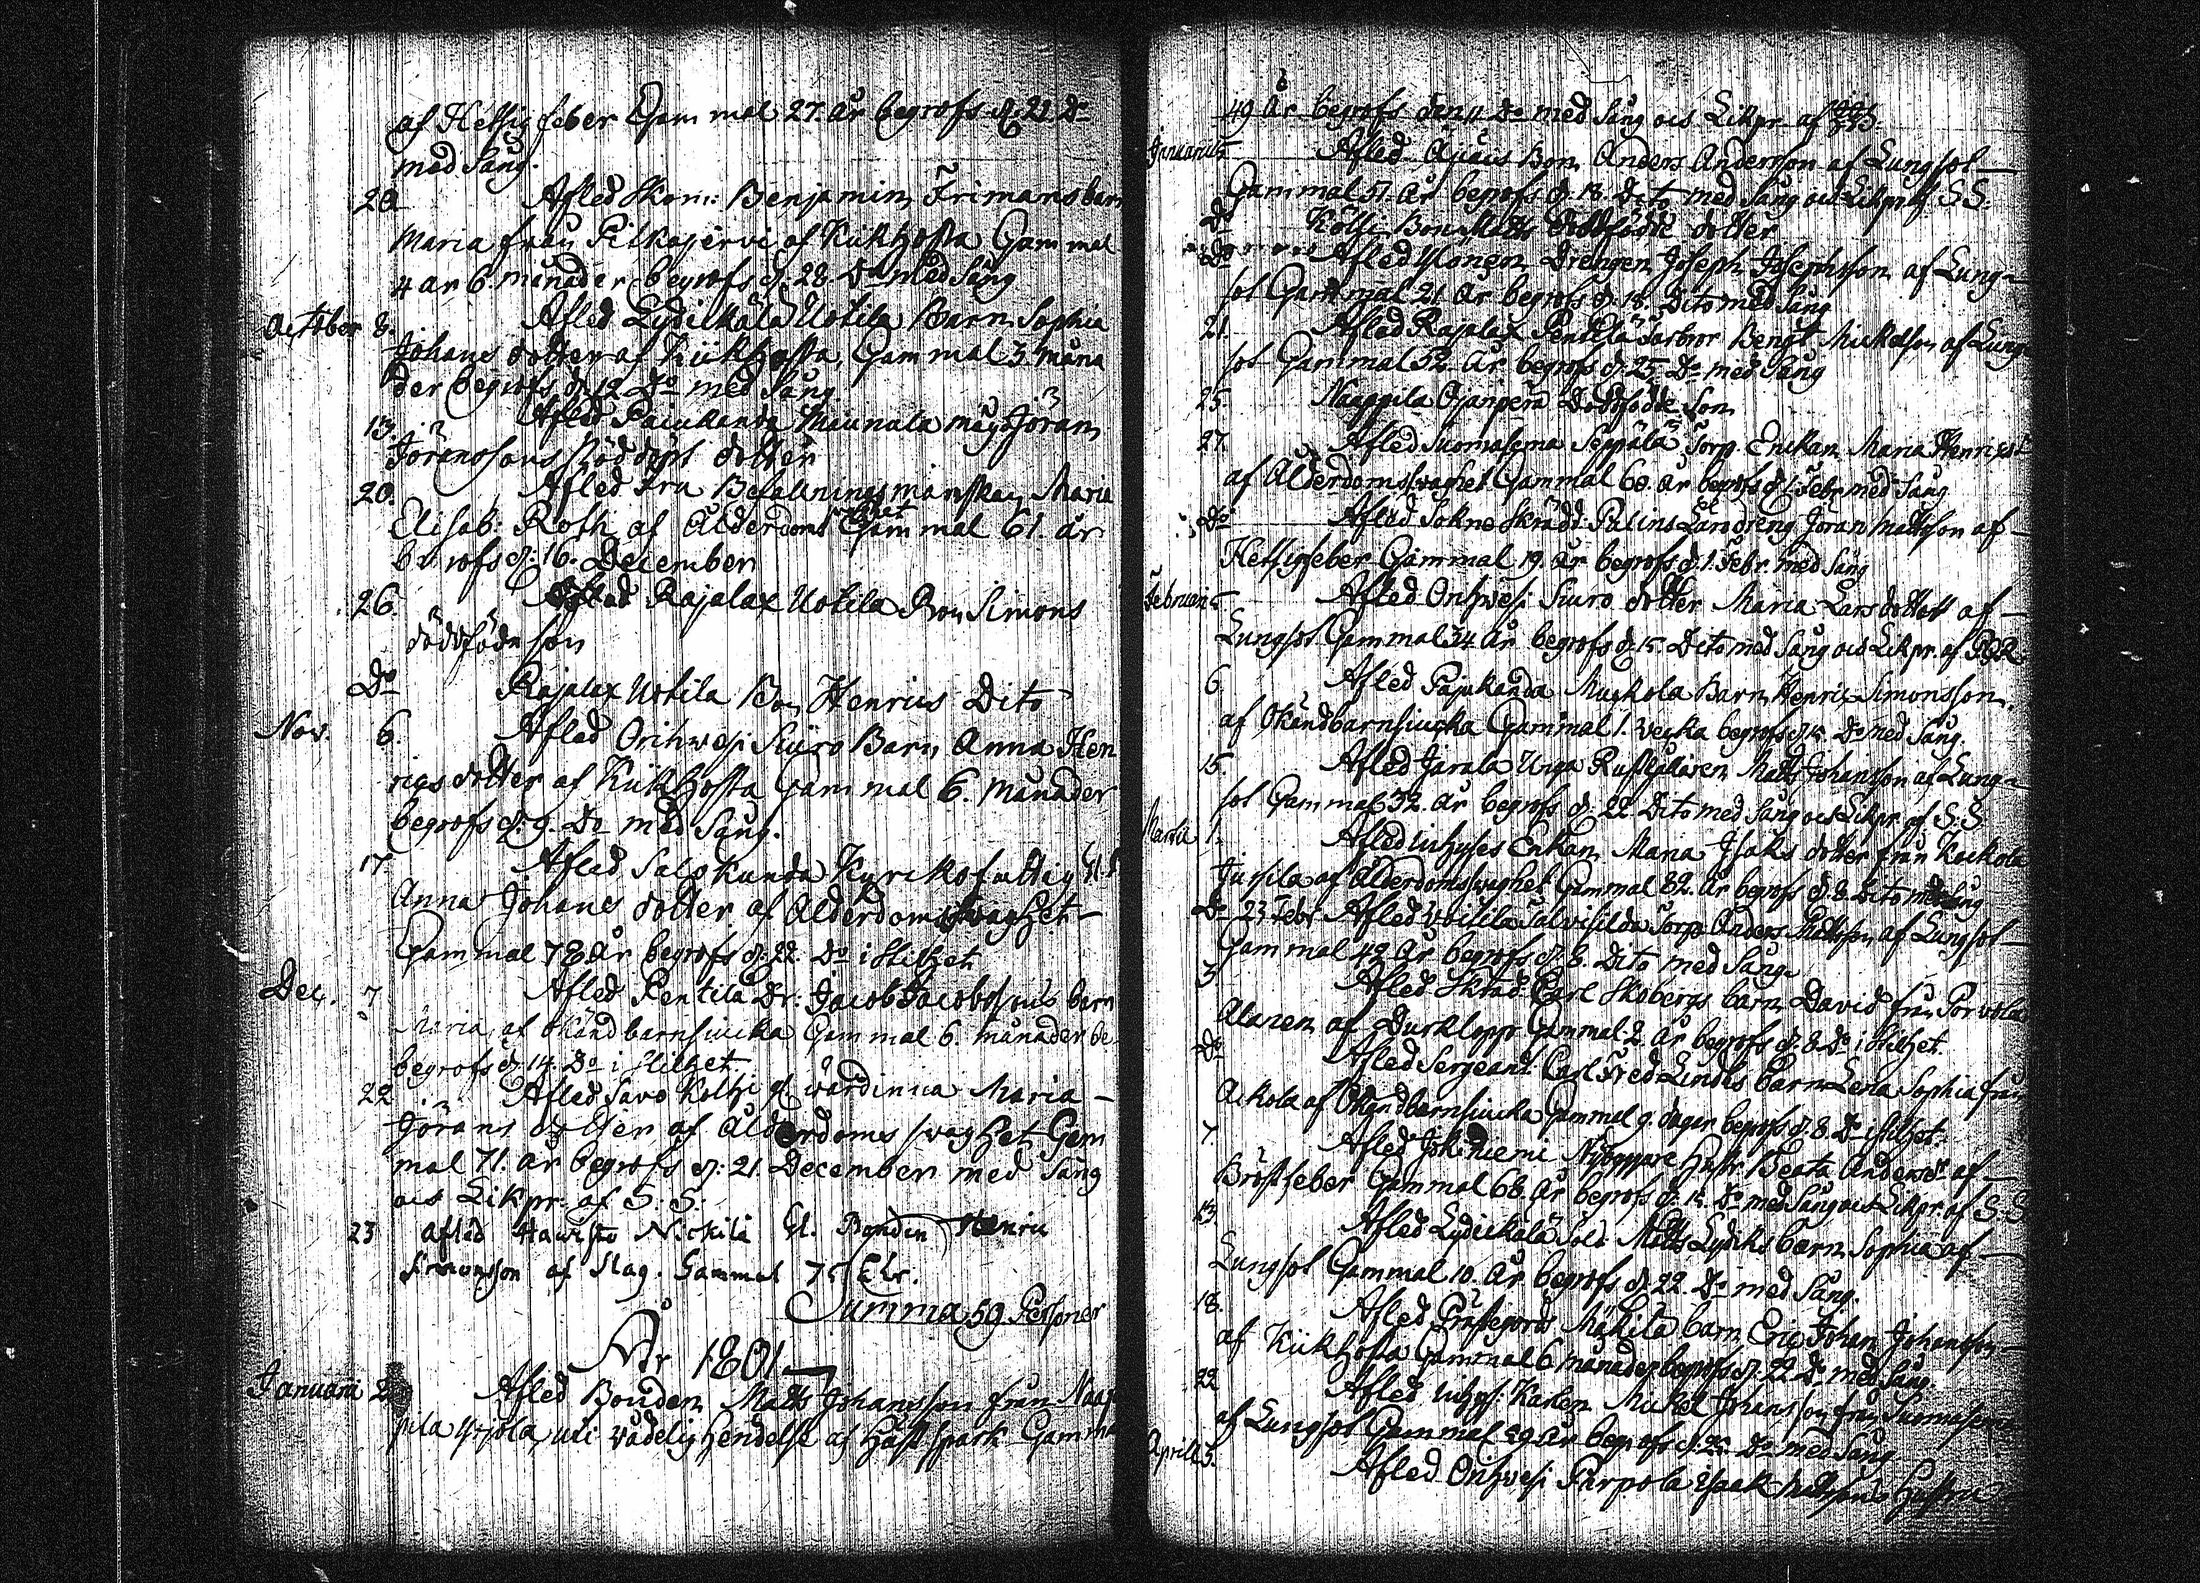 af Hettig feber Gammal 27. år begrofs d. 21 Do
med Sång.
20 Afled Skom: Benjamin Frimans barn
Maria från Pilkajervi af Kikhosta Gammal
4 år 6. månader begrofs d. 28. Do med Sång
October 8. Afled Lydickälä Uotila Barn Sophia
Johans dotter af Kikhosta, Gammal 3. måna
der begrofs d. 12 Do med Sång
13. Afled Pajukanda mågs Jöran
Jöransons dotter
20. Afled Fru Befallningsmanskan Maria
Elisab: Roth af Ålderdoms Gammal 61. år
begrofs d: 16. December
26. Afled Rajalax Uotila Bon Simons
dödfödn son
Do Rajalax Uotila Bon Henrics Dito
Nov. 6. Afled Orihwesi Suro Barn Anna Hen
ricsdotter af Kikhosta Gammal 6. månader
begrofs d. 9. Do med Sång.
17 Afled Salokunda Kyrckofattig
Anna Johans dotter af Ålderdomswaghet
Gammal 78 år begrofs d. 22. Do i stilhet
Dec. 7 Afled Pentilä Dr: Jacob Jacobssons barn
Maria af Okänd barnsiucka Gammal 6. månader
begrofs d. 14. Do i stilhet
22 Afled Savo Koltzi wärdinna Maria
Jörans dotter af Ålderdoms swaghet Gam
mal 71. år begrofs d: 21 December med Sång
och Likpr. af S: S:
23 afled Hawisto Nickilä Bonden Henric
Simonsson af Slag. Gammal
Summa 59 Personer
År 1801
Januari 2 Afled Bonden Matts Johansson från Naap
pila Yrjölä, uti wådelig hendelse af Häst spark Gammal
49 år begrofs den 11 Do med Sång och Likpr. af
Januarius Afled Bon Anders Andersson af Lungsot
Gammal 51. år begrofs d. 18. Dito med Sång och Likpr. af S S.
Do Kölli Bon Matts Dödfödde dotter
Do Afled Drengen Joseph Josephsson af Lung-
sot Gammal 21. år begrofs d. 18. Dito med Sång
21. Afled Rajalax Pentilä Bengt Mickelsson af Lung
sot Gammal 52. år begrofs d. 25 Do med Sång
25. Naappila Ojanperä Dödfödde Son
27. Afled Suomasema Seppälä Torp. Enkan Maria Henricsd
af Ålderdomswaghet Gammal 60. år begrofs d 1 Febr. med Sång
Do Afled Sokne Skrädd: Palins Läro dreng Jöran Mattsson af
Hettigfeber Gammal 19. år begrofs d. 1. Febr. med Sång
Februari Afled Orihwesi Suro dotter Maria Lars dotter af
Lungsot Gammal 34 år begrofs d. 15. Dito med Sång och Likpr. af
6. Afled Pajukanda Muckola Barn Henric Simonsson
af Okändbarnsiucka Gammal 1. wecka begrofs d. 15. Do med Sång
15. Afled Jarala Unga Rusthållaren Matts Johansson af Lung-
sot Gammal 32. år begrofs d. 22 Dito med Sång och Likpr. af S. S
Martii 1. Afled inhyses Enkan Maria Isaks dotter från Kockola
Jussila af Ålderdomswaghet Gammal 82. år begrofs d 8. Dito med Sång
Do 23 Febr Afled Torp Anders Mattsson af Lungsot
Gammal 42 år begrofs d. 8. Dito med Sång
3 Afled Skräd: Carl Skobergs barn David från Porvola
Alanen af Durklopp. Gammal 2. år begrofs d. 8. Do i stilhet
Do Afled Sergeant Carl Fred Lindhs barn Lena Sophia från
Ackola af Okändbarnsiucka Gammal 9. dagar begrofs d. 8. Do i stilhet.
7 Afled Jokiniemi Nybyggare Hustr. Beata Andersdr af
Bröstfeber Gammal 68. år begrofs d. 15. Do med Sång och Likpr. af S. S
13 Afled Lydickälä Sold Matts Lydiks barn Sophia af
Lungsot Gammal 10. år begrofs d. 22. Do med Sång.
18. Afled Prästgårds Mäkilä barn Eric Johan Johansson
af Kikhosta Gammal 6 månader begrofs d. 22 Do med Sång.
22 Afled inhys: Karlen Mickel Johansson från Suomasema
af Lungsot Gammal 29 år begrofs d. Do med Sång
Aprill 3. Afled Orihwesi Pärpola Isaak Mattsons Hustru